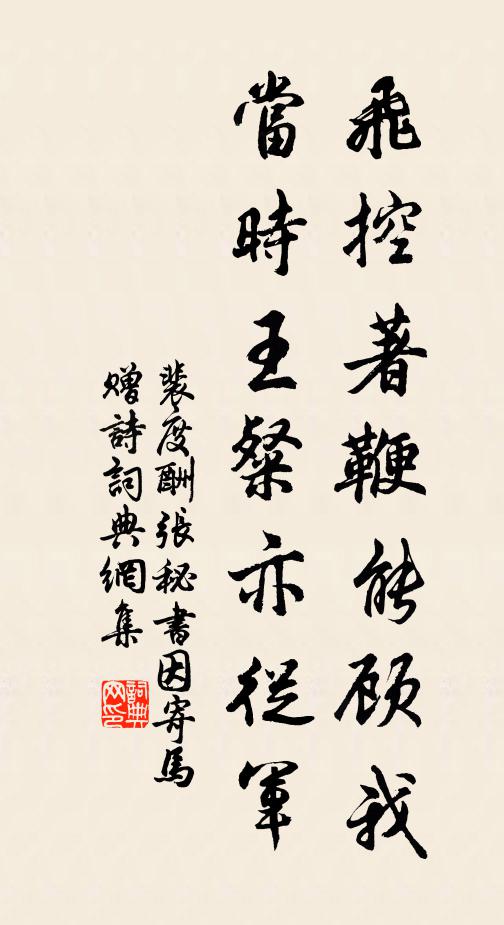 飛控著鞭能顧我
當時王粲亦從軍
裴度酬張秘書因寄馬
贈詩詞典網集
詞典网印